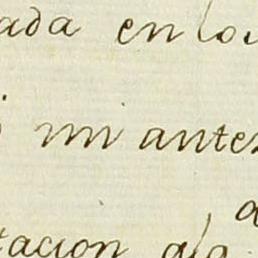 ada en lo
mi ante
tacion ala